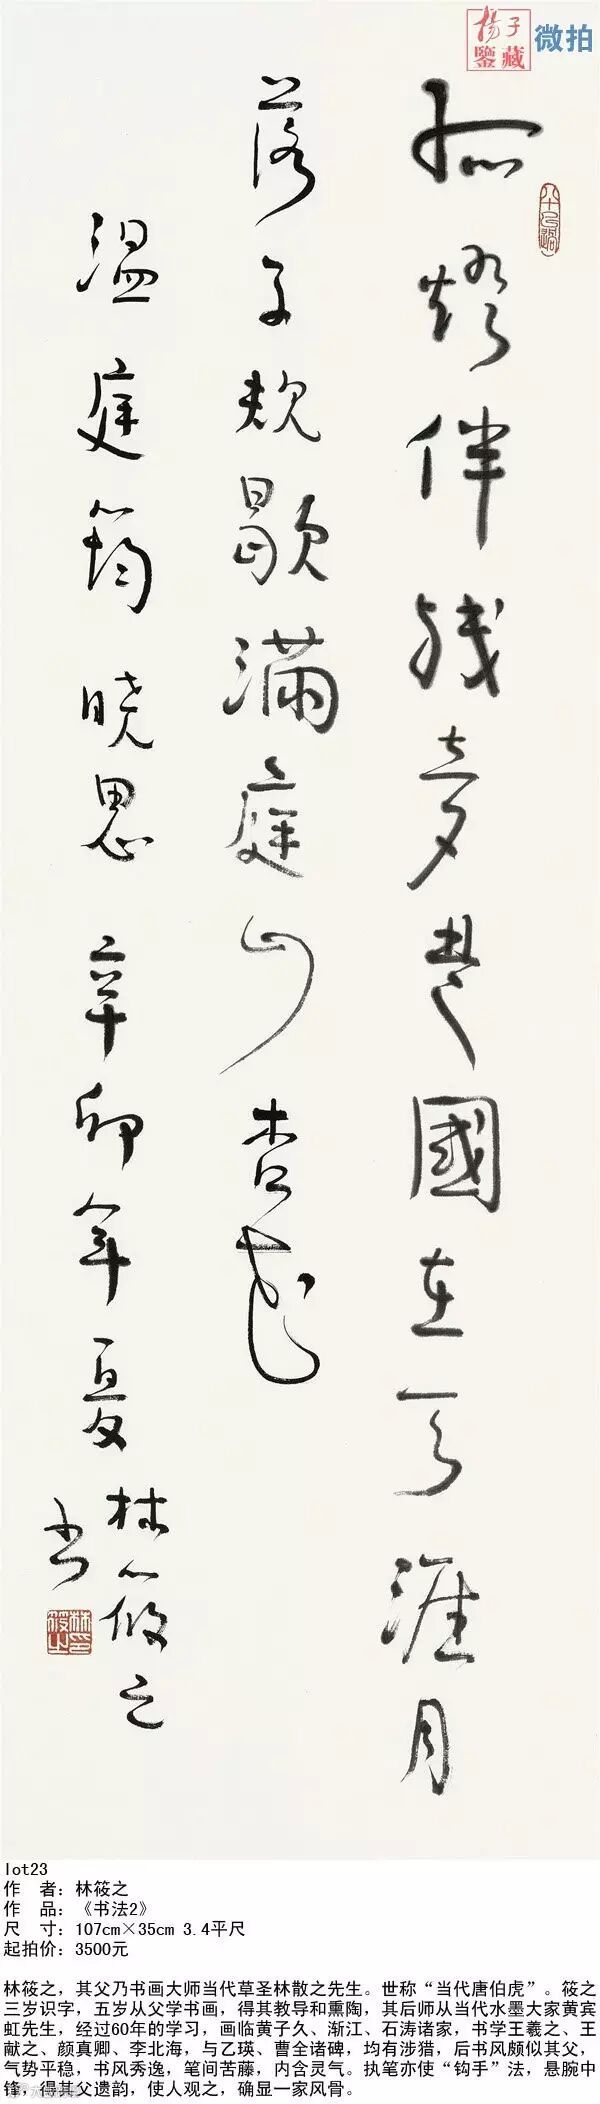 楊子
鑒藏
微拍
孤燈伴残梦楚國在天涯月
落子规歇满庭山杏花
温庭筠晓思 辛卯年夏
林筱之
书
lot23
作 者：林筱之
作 品：《书法2》
尺 寸：107cm×35cm 3.4平尺
起拍价：3500元
林筱之，其父乃书画大师当代草圣林散之先生。世称“当代唐伯虎”。筱之
三岁识字，五岁从父学书画，得其教导和熏陶，其后师从当代水墨大家黄宾
虹先生，经过60年的学习，画临黄子久、渐江、石涛诸家，书学王羲之、王
献之、颜真卿、李北海，与乙瑛、曹全诸碑，均有涉猎，后书风颇似其父，
气势平稳，书风秀逸，笔间苦藤，内含灵气。执笔亦使“钩手”法，悬腕中
锋，得其父遗韵，使人观之，确显一家风骨。